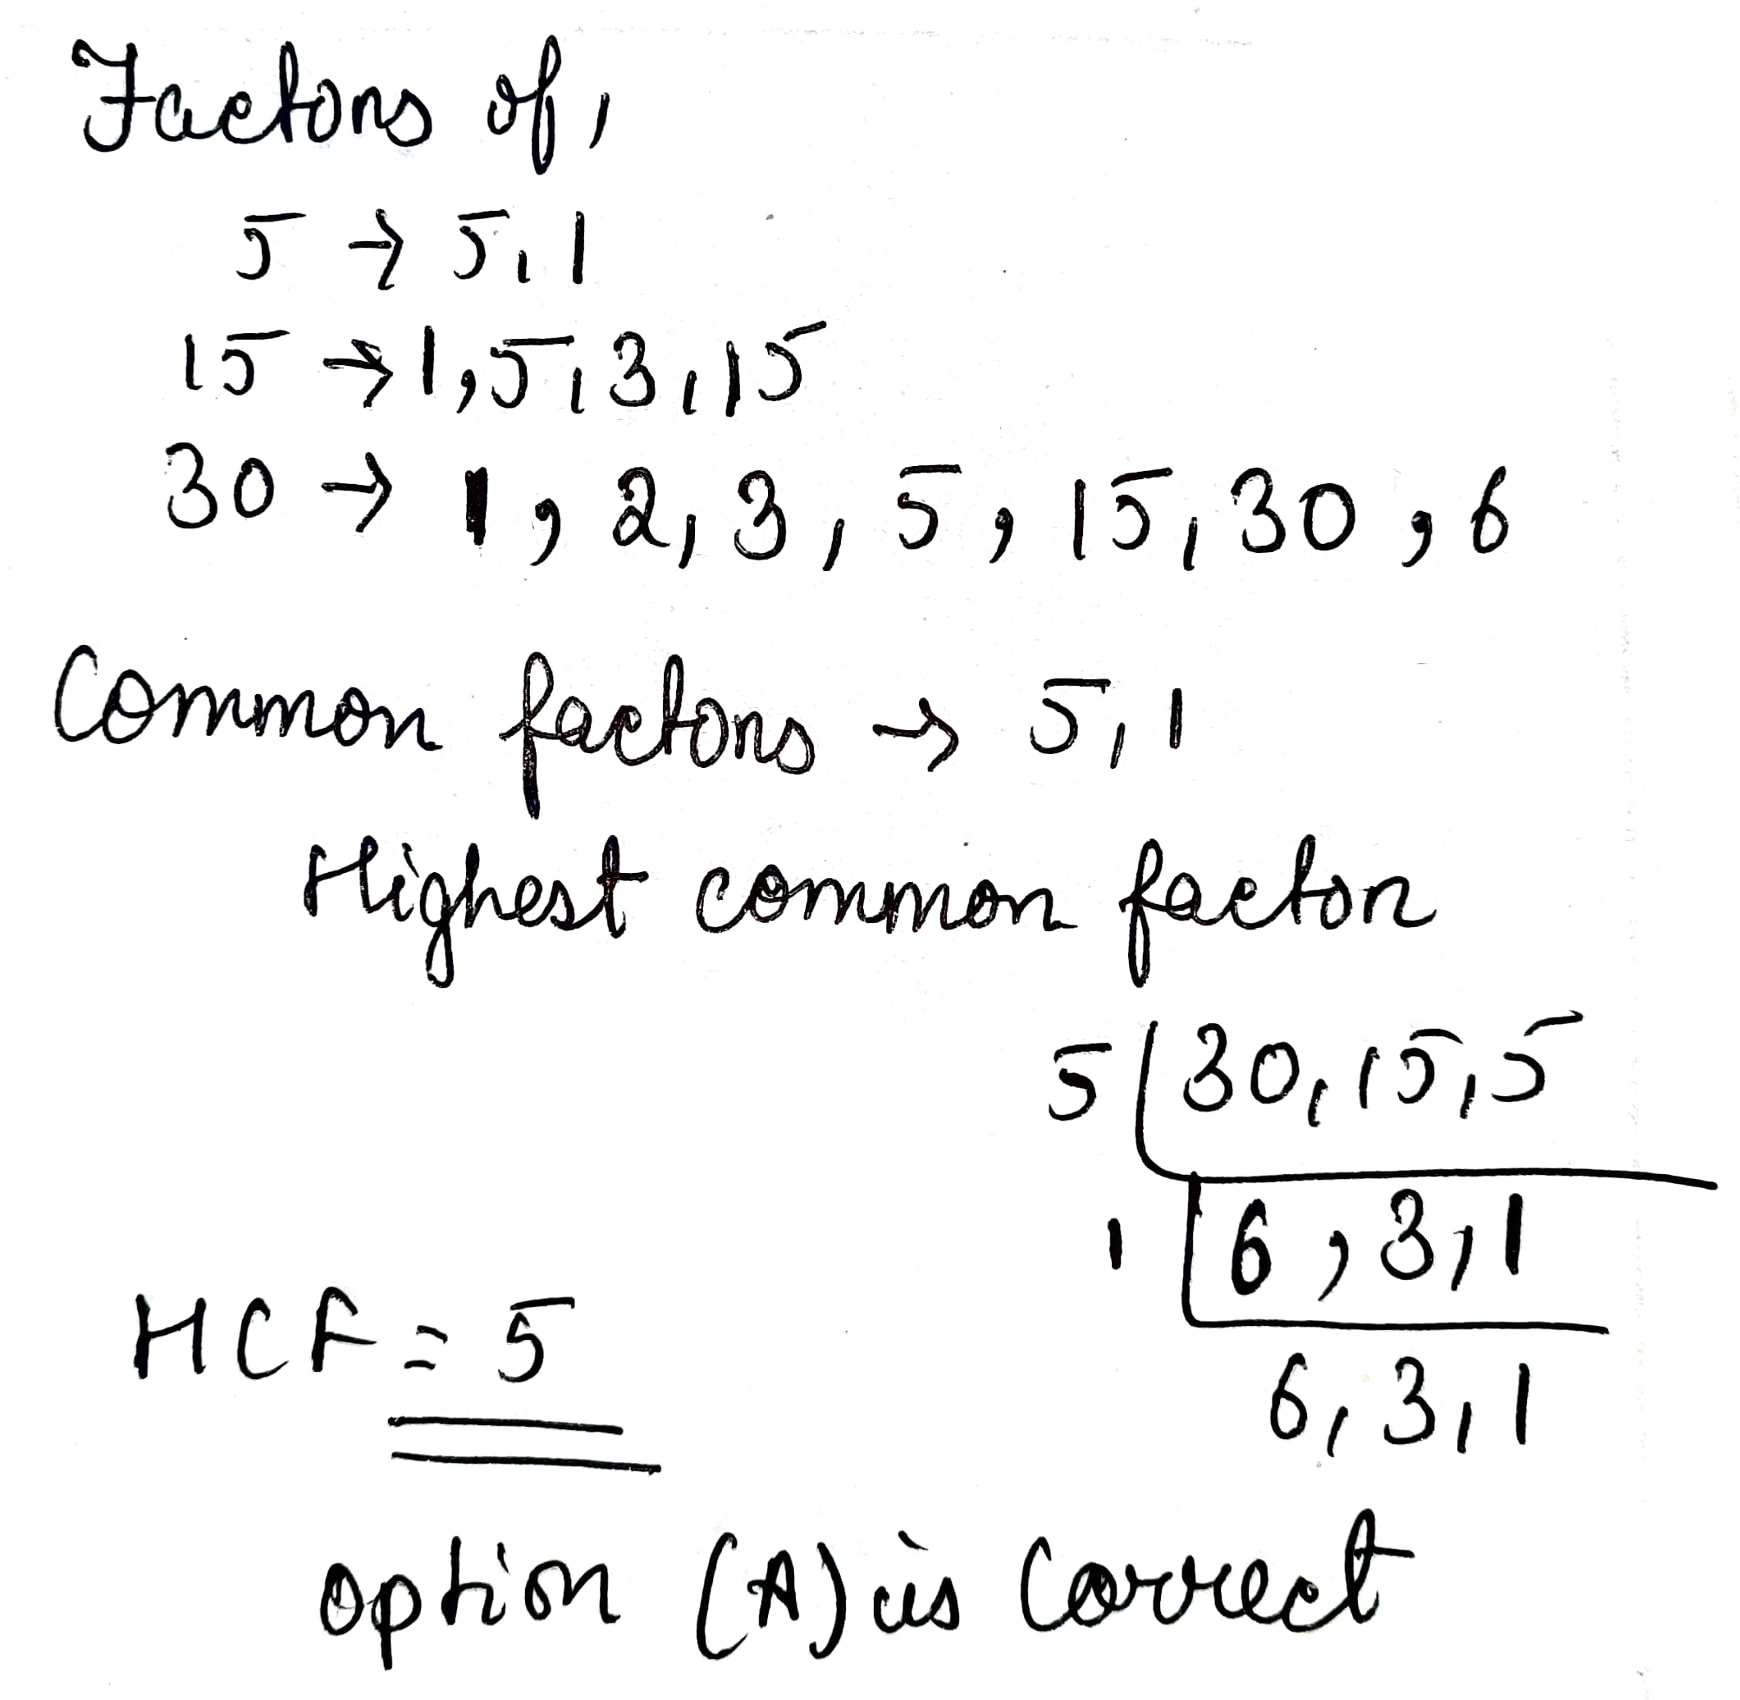 Factors of,
5 → 5,1
15 → 1,5,3,15
30 → 1, 2, 3, 5, 15, 30, 6
Common factors → 5,1
Highest common factor
5 | 30, 15, 5
1 | 6, 3, 1
6, 3, 1
HCF = 5
option (A) is correct